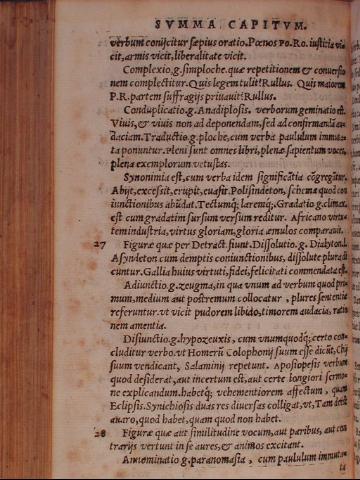 SVMMA CAPITVM.
verbum conijcitur sæpius oratio. Pœnos Po. Ro. iustitia vi
cit, armis vicit, liberalitate vicit.
Complexio.g.simploche. quæ repetitionem & conuersio
nem complectitur. Quis legem tulit? Rullus. Quis maiorem
P.R. partem suffragijs priuauit? Rullus.
Conduplicatio.g. Anadiplosis. verborum geminatio est.
Viuis, & viuis non ad deponendam, sed ad confirmandā au
daciam. Traductio.g. ploche, cum verba paululum immuta
ta ponuntur. Pleni sunt omnes libri, plenæ sapientum voces,
plena exemplorum vetustas.
Synonimia est, cum verba idem significātia cōgregātur.
Abijt, excessit, erupit, euasit. Polisindeton, schema quod con
iunctionibus abūdat. Tectumq; laremq;. Gradatio g. climax
est cum gradatim sursum versum reditur. Africano virtu
tem industria, virtus gloriam, gloria æmulos comparauit.
27 Figuræ quæ per Detract. fiunt. Dissolutio.g. Dialyton.
Asyndeton cum demptis coniunctionibus, dissolute plura di
cuntur. Galliæ huius virtuti, fidei, felicitati commendata est.
Adiunctio.g. zeugma, in qua vnum ad verbum quod pri
mum, medium aut postremum collocatur, plures sententiæ
referuntur. vt vicit pudorem libido, timorem audacia, ratio
nem amentia.
Disiunctio.g. hypozeuxis, cum vnumquodq; certo con
cluditur verbo. vt Homerū Colophonij suum esse dicūt, Chij
suum vendicant, Salaminij repetunt. Aposiopesis verbum
quod desiderat, aut incertum est, aut certe longiori sermo
ne explicandum. habetq; vehementiorem affectum, quam
Eclipsis. Synichiosis duas res diuersas colligat, vt, Tam deest
auaro, quod habet, quam quod non habet.
28 Figuræ quæ aut similitudine vocum, aut paribus, aut con
trarijs vertunt in se aures, & animos excitant.
Annominatio g. paronomasia, cum paululum immuta